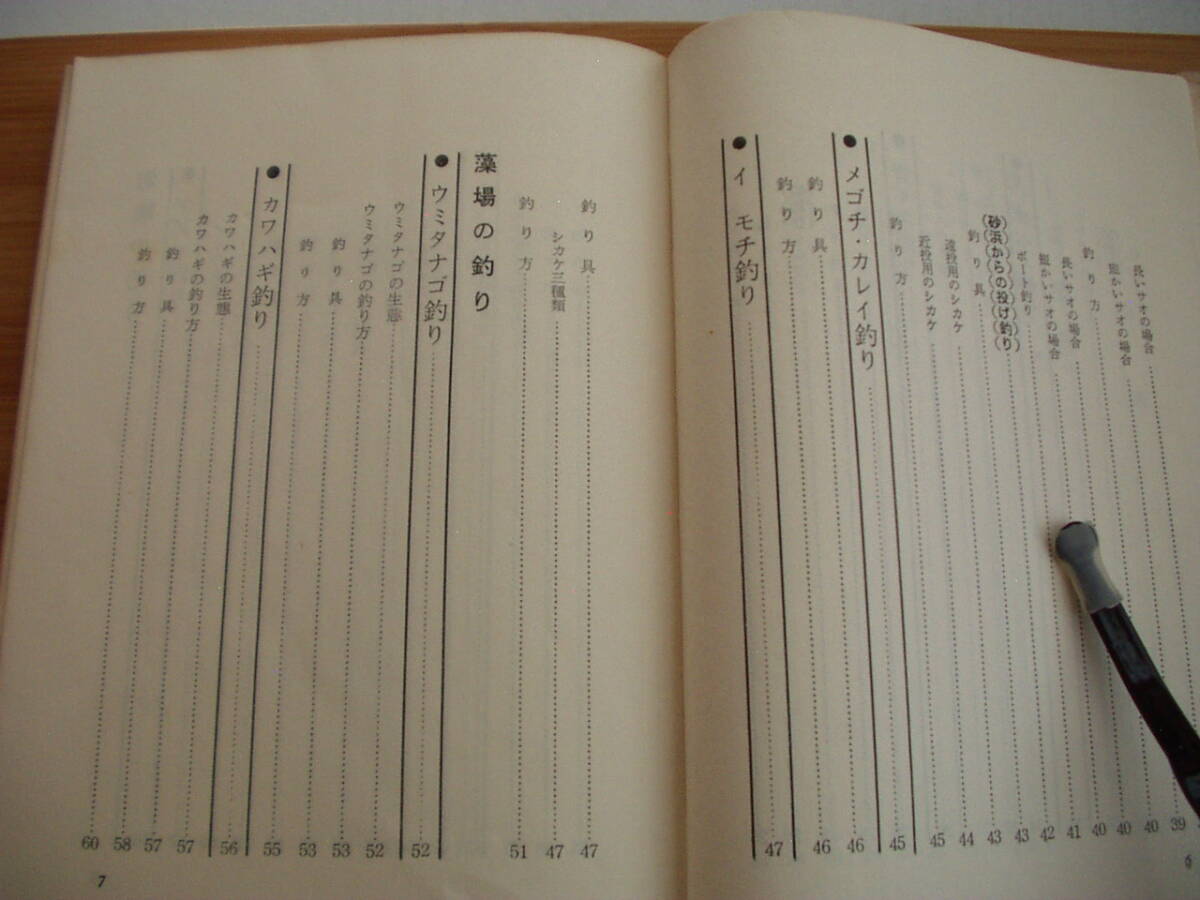 長いサオの場合……39
短かいサオの場合……40
釣り方……40
長いサオの場合……40
短かいサオの場合……41
ボート釣り……42
(砂浜からの投げ釣り)
釣り具……43
遠投用のシカケ……43
近投用のシカケ……44
釣り方……45
●メゴチ・カレイ釣り……45
釣り具……46
釣り方……46
●イ モチ釣り……47
6
釣り具……47
シカケ三種類……47
釣り方……51
藻場の釣り
●ウミタナゴ釣り……52
ウミタナゴの生態……52
ウミタナゴの釣り方……53
釣り具……53
釣り方……55
●カワハギ釣り……56
カワハギの生態……57
カワハギの釣り方……57
釣り具……58
釣り方……60
7